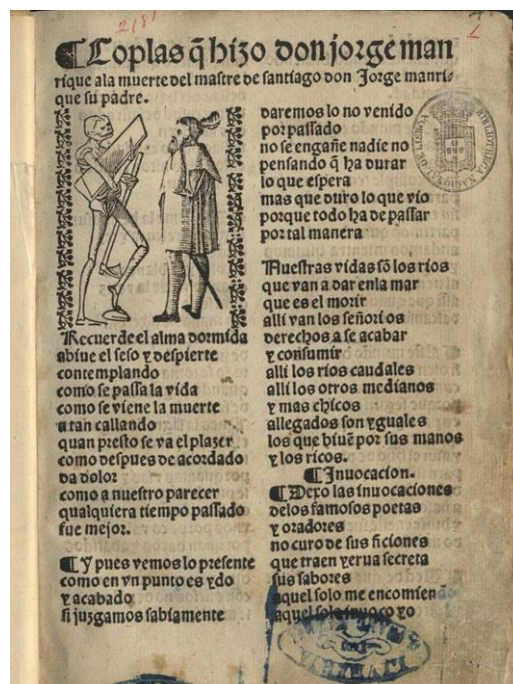 2181
1
Coplas q̃ hizo don jorge man
rique ala muerte del mastre de santiago don Jorge manri-
que su padre.
Recuerde el alma dormida
abiue el seso ⁊ despierte
contemplando
como se passa la vida
como se viene la muerte
a tan callando
quan presto se va el plazer
como despues de acordado
da dolor
como a nuestro parecer
qualquiera tiempo passado
fue mejor.
Y pues vemos lo presente
como en vn punto es ydo
⁊ acabado
si juzgamos sabiamente
daremos lo no venido
por passado
no se engañe nadie no
pensando q̃ ha durar
lo que espera
mas que duro lo que vio
porque todo ha de passar
por tal manera
Nuestras vidas sõ los rios
que van a dar enla mar
que es el morir
alli van los señori os
derechos a se acabar
⁊ consumir
alli los rios caudales
alli los otros medianos
⁊ mas chicos
allegados son yguales
los que biuẽ por sus manos
⁊ los ricos.
Inuocacion.
Dexo las inuocaciones
delos famosos poetas
⁊ oradores
no curo de sus ficiones
que traen yerua secreta
sus sabores
aquel solo me encomiendo
aquel solo inuoco yo
BIBLIOTHECA NACIONAL DE LISBOA